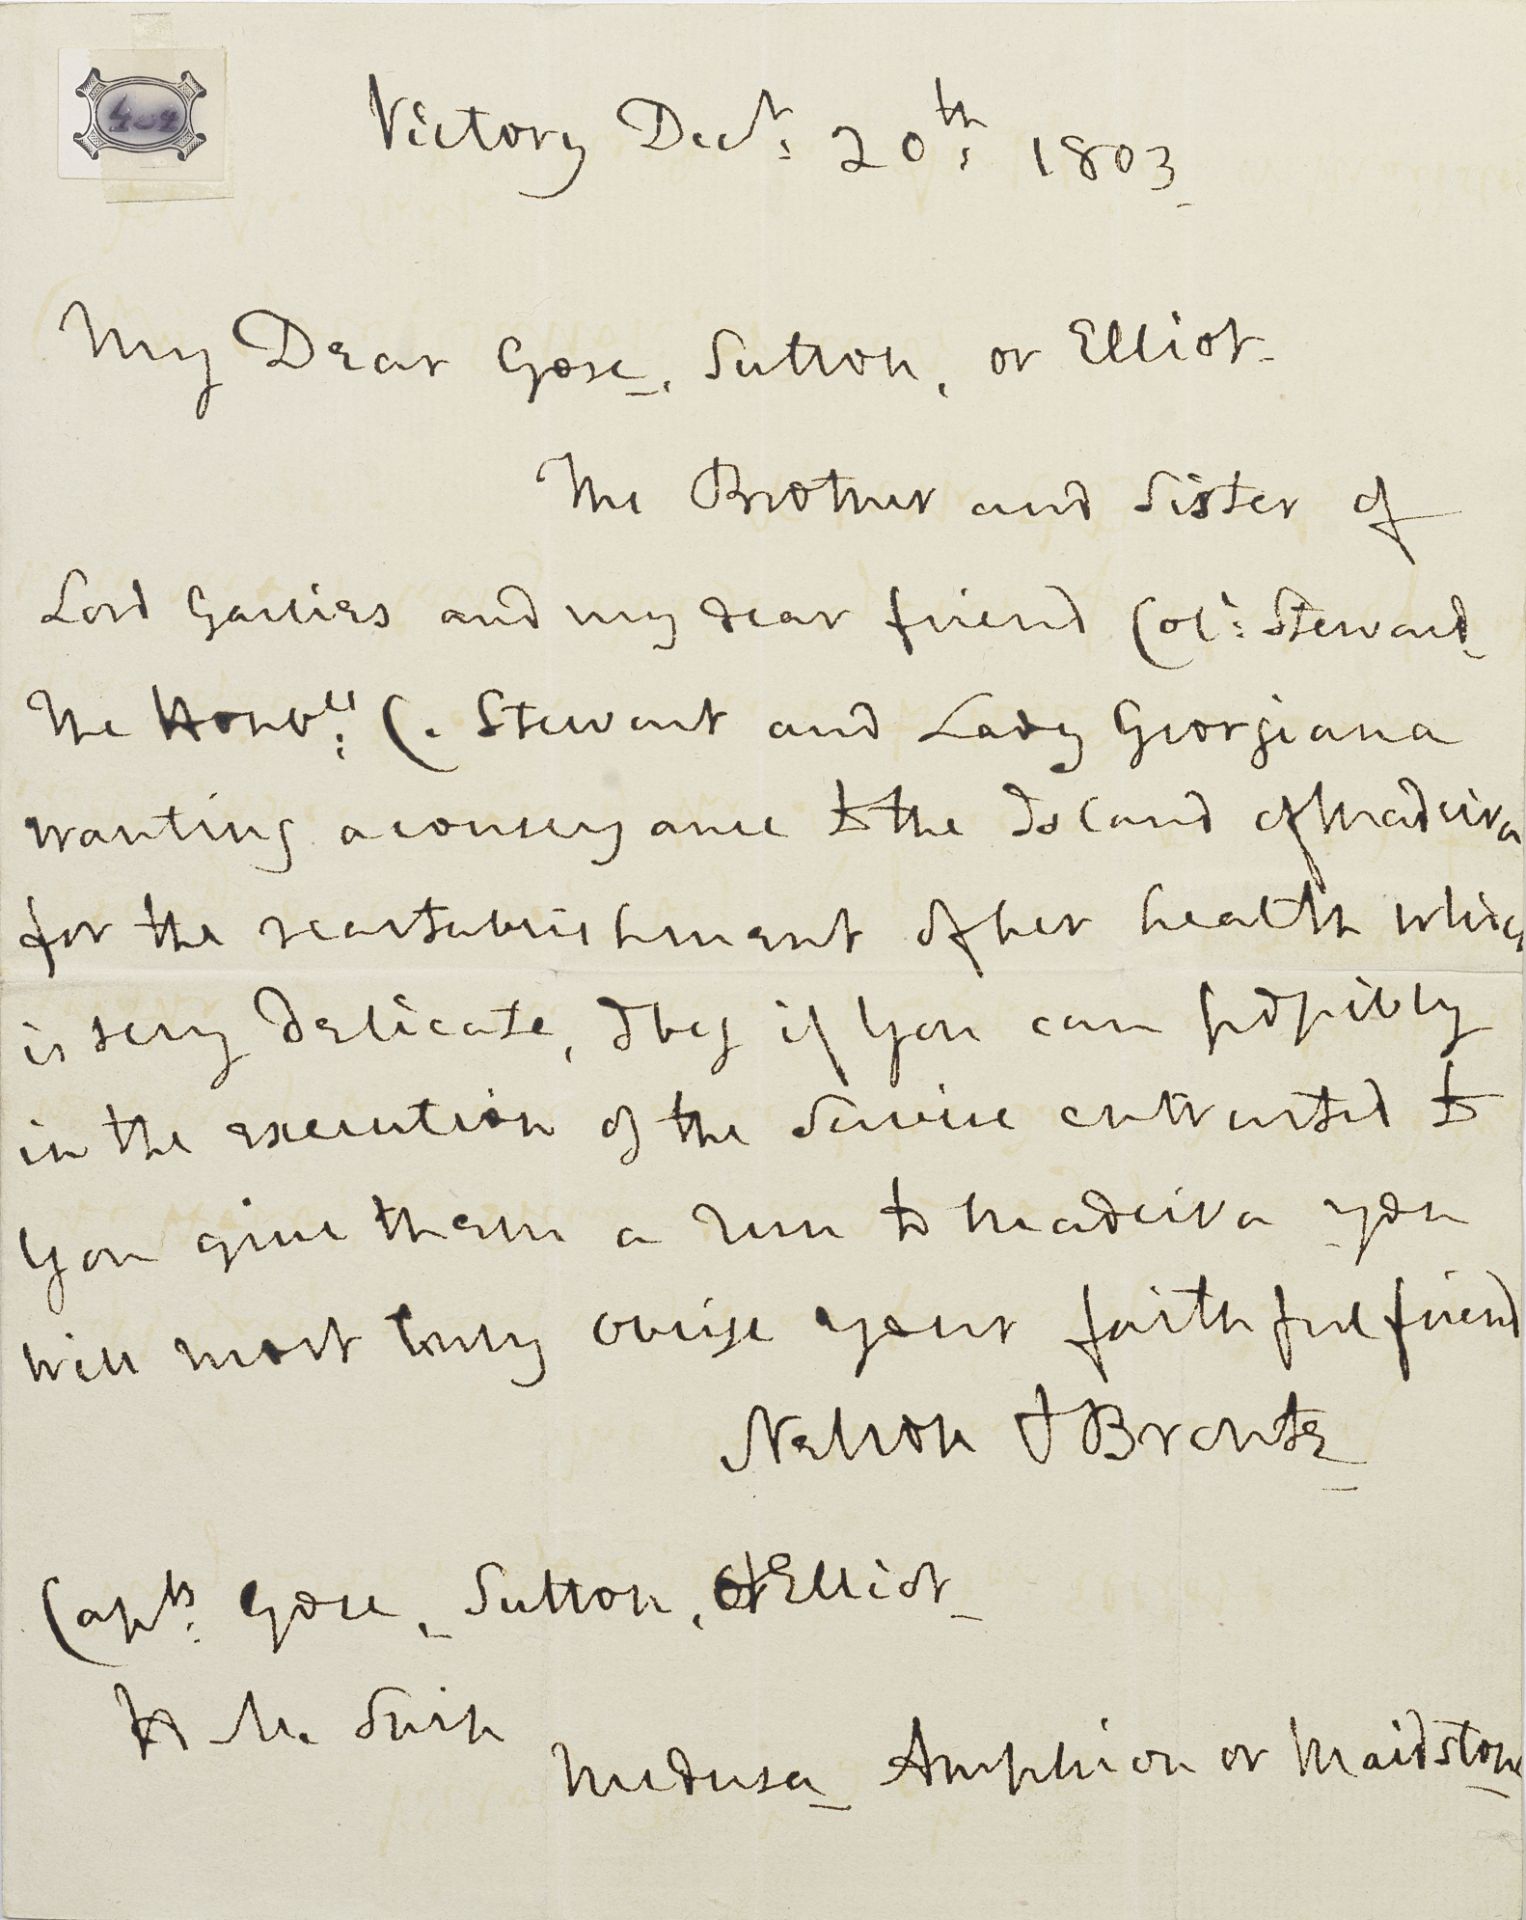 404
Victory Decr: 20th: 1803
My Dear Gore, Sutton, or Elliot
The Brother and Sister of
Lord Garlies and my dear friend Col: Steward
The Honble: C. Stewart and Lady Georgiana
wanting a conveyance to the Island of Madeira
for the reestablishment of her health which
is very delicate, I beg if You can possibly
in the execution of the Service entrusted to
You give them a run to Madeira you
will most truly oblige your faithful friend
Nelson & Bronte
Capts: Gore, Sutton, or Elliot
H M. Ship
Medusa Amphion or Maidstone